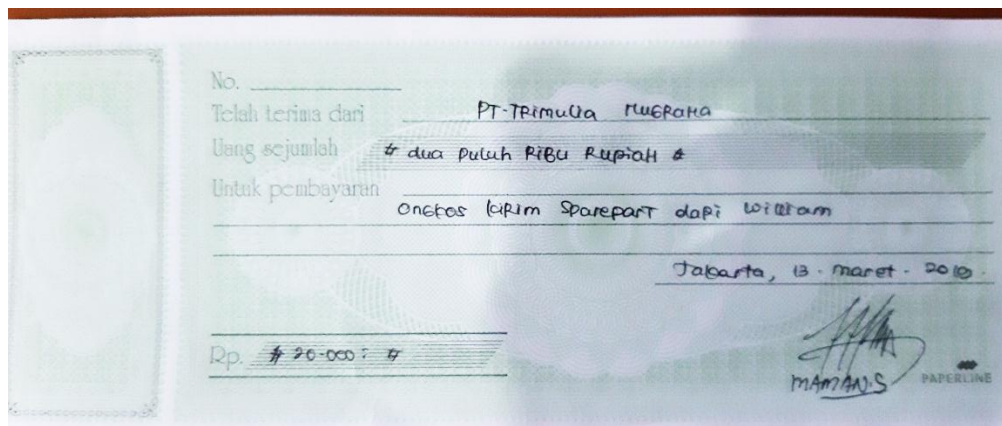 No.
Telah terima dari PT-TRimulia NUGRAHA
Uang sejumlah # dua puluh RiBu RupiaH #
Untuk pembayaran
ongkos kiRim SparepaRT daRi William
Jakarta, 13 - maret - 2019.
Rp. # 20.000 : #
MAMAN.S
PAPERLINE